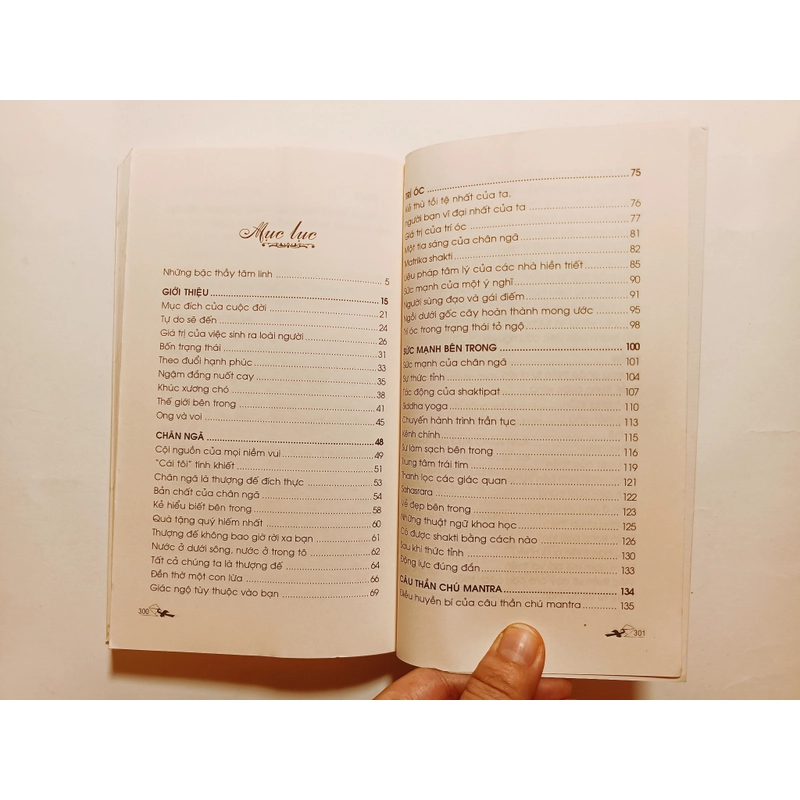 Mục lục
Những bậc thầy tâm linh 5
GIỚI THIỆU 15
Mục đích của cuộc đời 21
Tự do sẽ đến 24
Giá trị của việc sinh ra loài người 26
Bốn trạng thái 31
Theo đuổi hạnh phúc 33
Ngậm đắng nuốt cay 35
Khúc xương chó 38
Thế giới bên trong 41
Ong và voi 45
CHÂN NGÃ 48
Cội nguồn của mọi niềm vui 49
"Cái tôi" tinh khiết 51
Chân ngã là thượng đế đích thực 53
Bản chất của chân ngã 54
Kẻ hiểu biết bên trong 58
Quà tặng quý hiếm nhất 60
Thượng đế không bao giờ rời xa bạn 61
Nước ở dưới sông, nước ở trong tô 62
Tất cả chúng ta là thượng đế 64
Đền thờ một con lừa 66
Giác ngộ tùy thuộc vào bạn 69
300
TRÍ ÓC 75
Kẻ thù tồi tệ nhất của ta,
người bạn vĩ đại nhất của ta 76
Giá trị của trí óc 77
Một tia sáng của chân ngã 81
Matrika shakti 82
Liệu pháp tâm lý của các nhà hiền triết 85
Sức mạnh của một ý nghĩ 90
Người sùng đạo và gái điếm 91
Ngồi dưới gốc cây hoàn thành mong ước 95
Trí óc trong trạng thái tỏ ngộ 98
SỨC MẠNH BÊN TRONG 100
Sức mạnh của chân ngã 101
Sự thức tỉnh 104
Tác động của shaktipat 107
Siddha yoga 110
Chuyến hành trình trần tục 113
Kênh chính 115
Sự làm sạch bên trong 116
Trung tâm trái tim 119
Thanh lọc các giác quan 121
Sahasrara 122
Vẻ đẹp bên trong 123
Những thuật ngữ khoa học 125
Có được shakti bằng cách nào 126
Sau khi thức tỉnh 130
Động lực đúng đắn 133
CÂU THẦN CHÚ MANTRA 134
Điều huyền bí của câu thần chú mantra 135
301